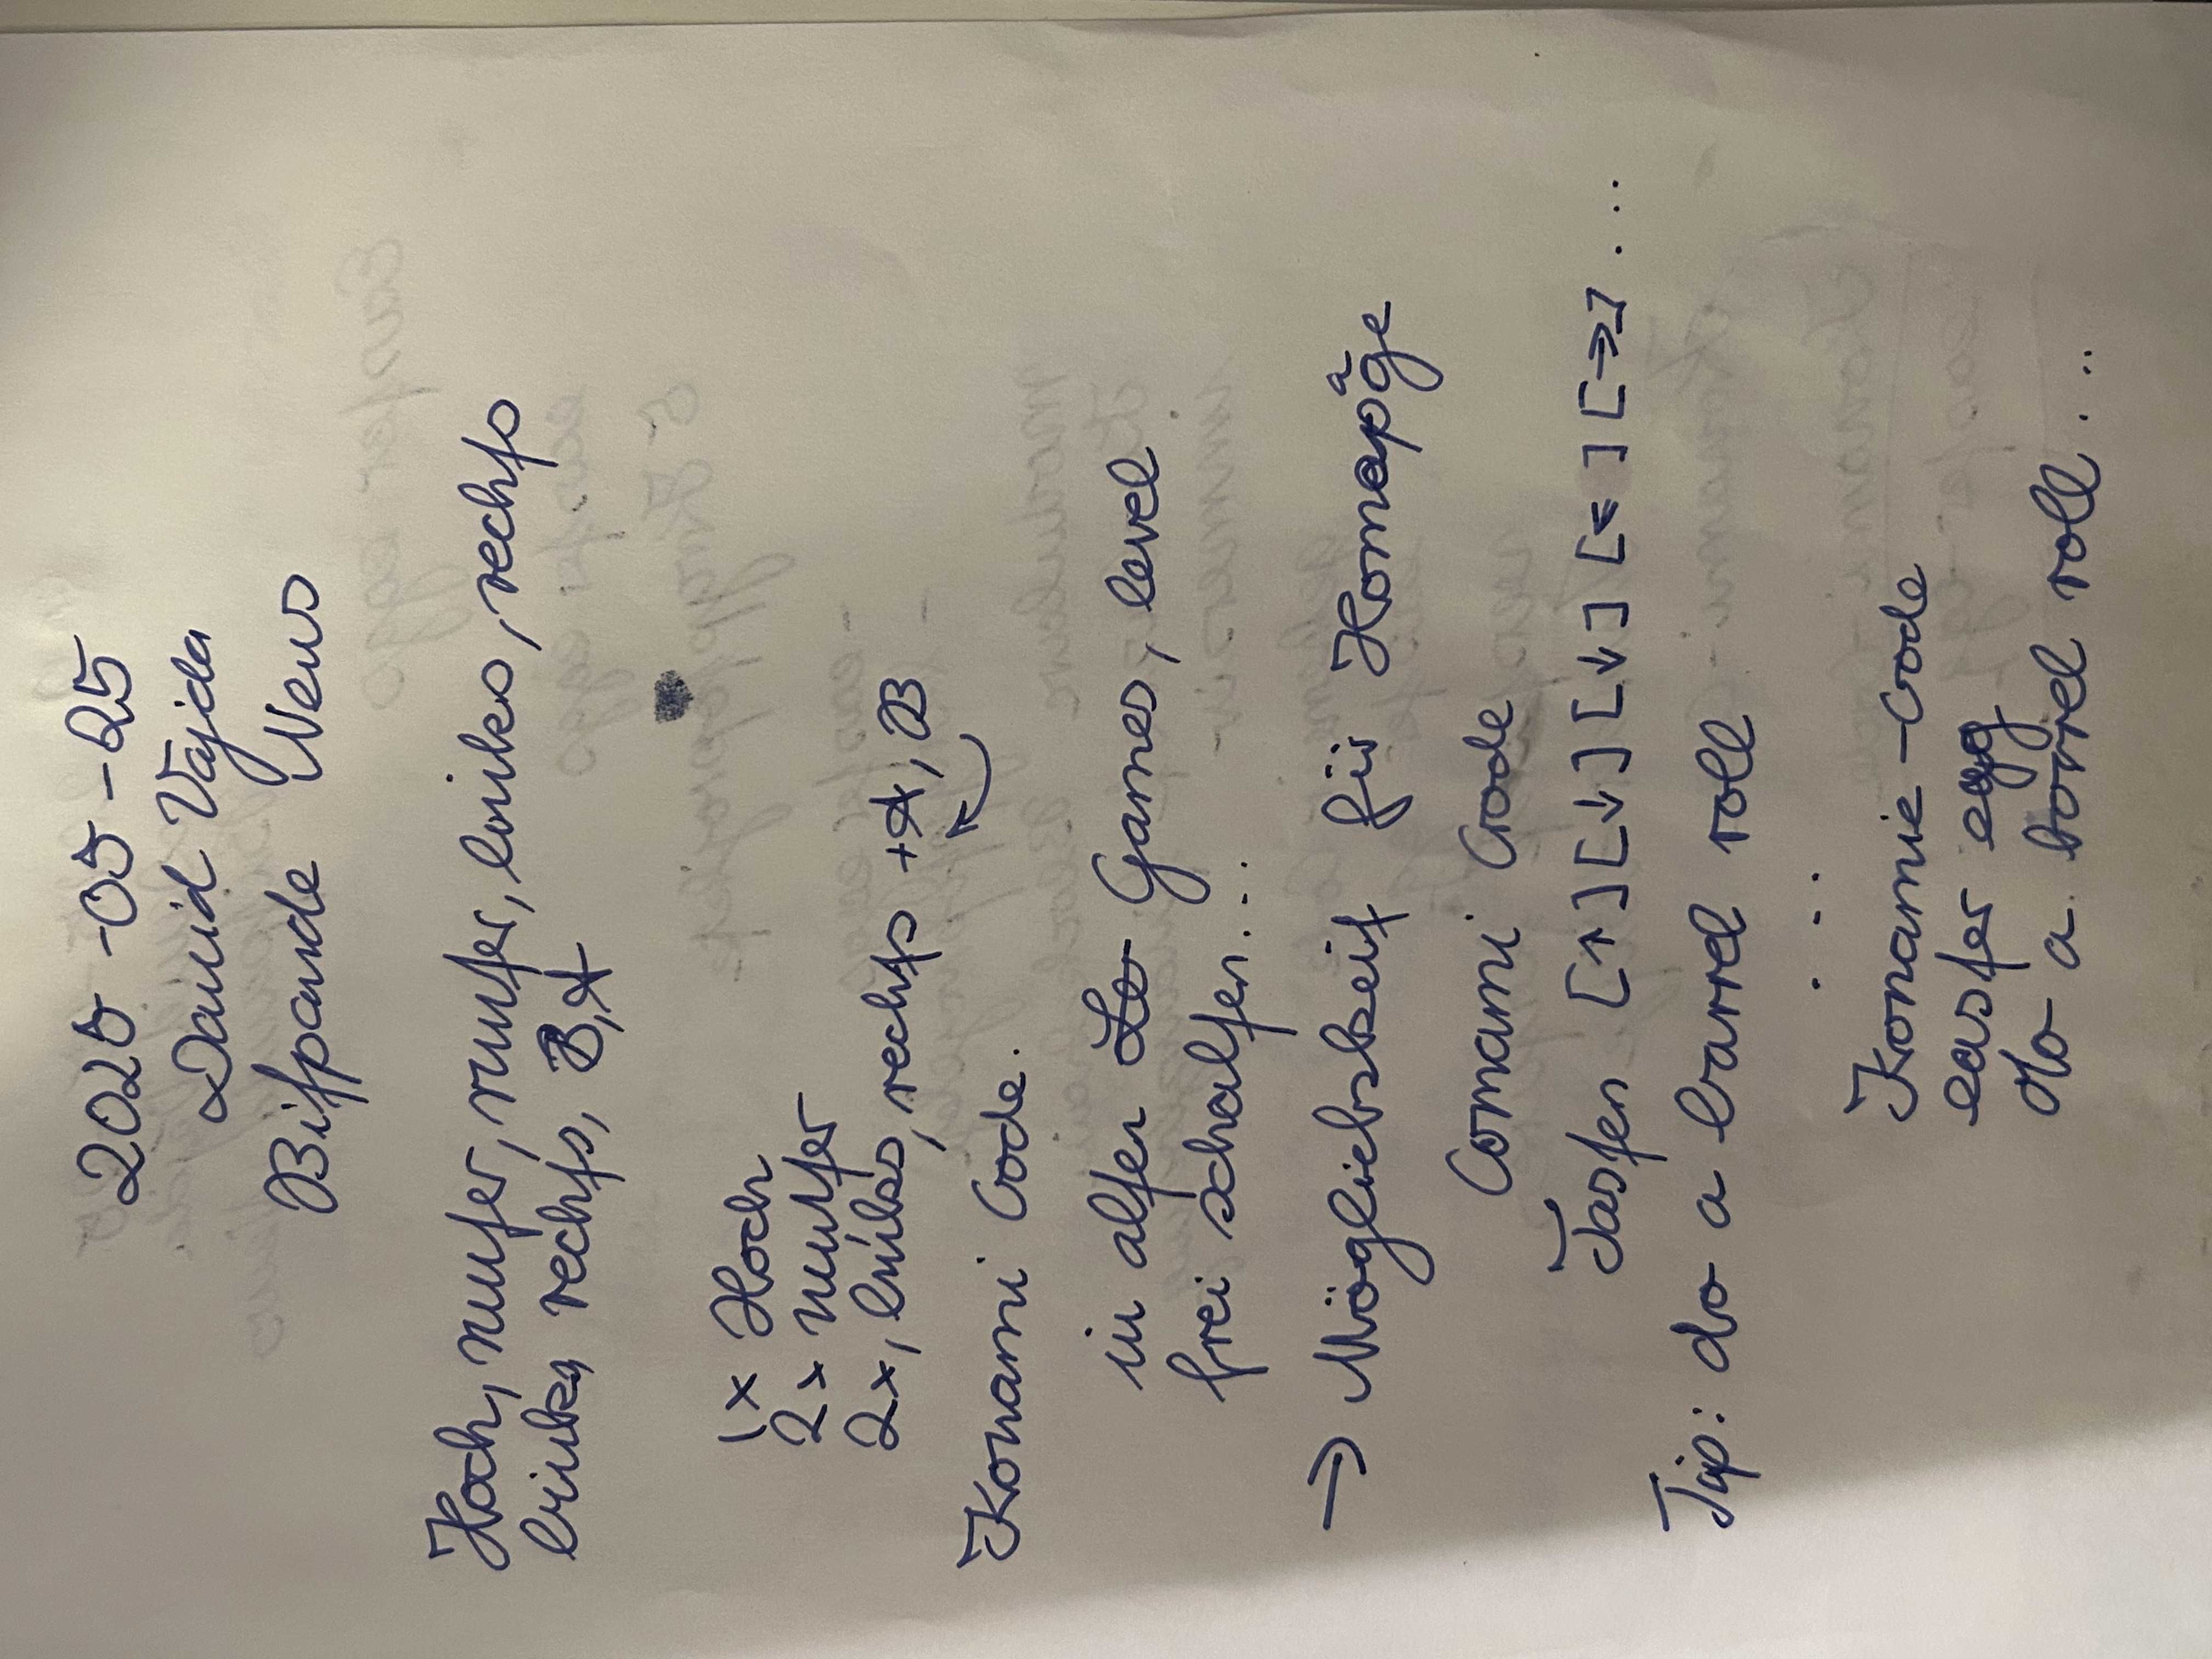 2025-05-25
David Vajda
Bitpanda News
Hoch, runter, runter, links, rechts
links, rechts, B, A
1x Hoch
2x runter
2x, links, rechts + A, B
Konami Code.
in alten Games, level
frei schalten...
→ Möglichkeit für Homepage
Comami Code
Tasten [↑][↓][↓][←][→]...
Tip: do a barrel roll
...
Konamie-Code
easter egg
do a barrel roll...